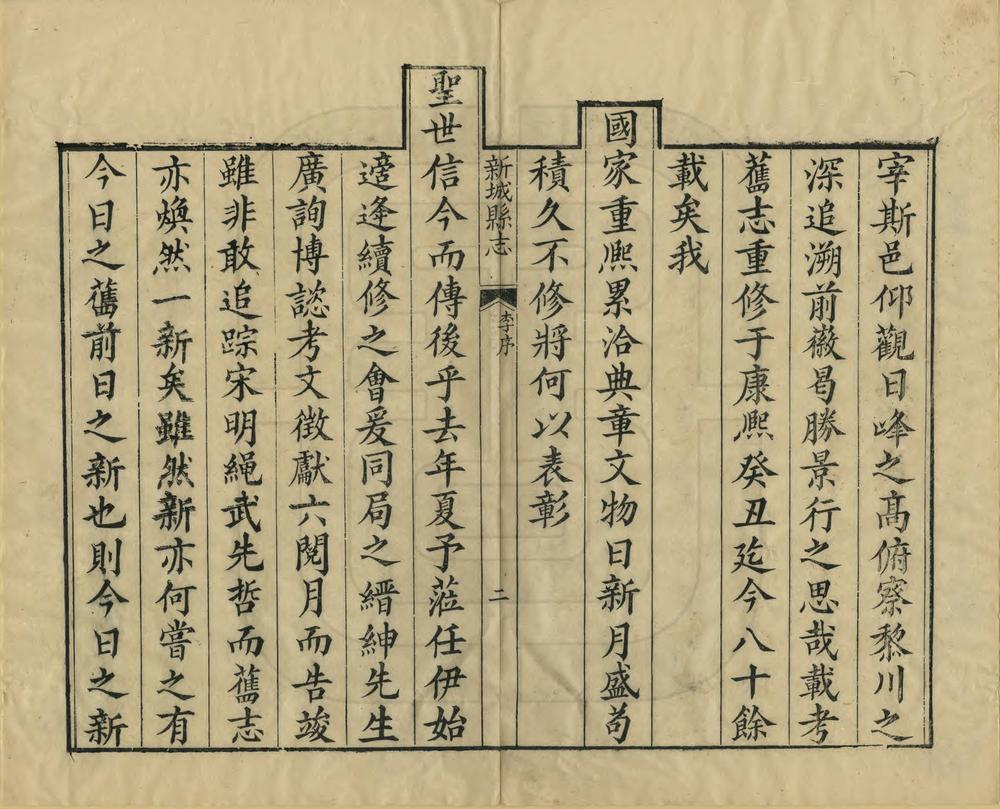 宰斯邑仰觀日峰之髙俯察黎川之
深追溯前徽曷勝景行之思哉載考
舊志重修于康熙癸丑迄今八十餘
載矣我
國家重熙累洽典章文物日新月盛苟
積久不修將何以表彰
新城縣志
李序
二
聖世信今而傳後乎去年夏予蒞任伊始
適逢續修之會爰同局之縉紳先生
廣詢博諮考文徵獻六閱月而告竣
雖非敢追踪宋明繩武先哲而舊志
亦煥然一新矣雖然新亦何嘗之有
今日之舊前日之新也則今日之新